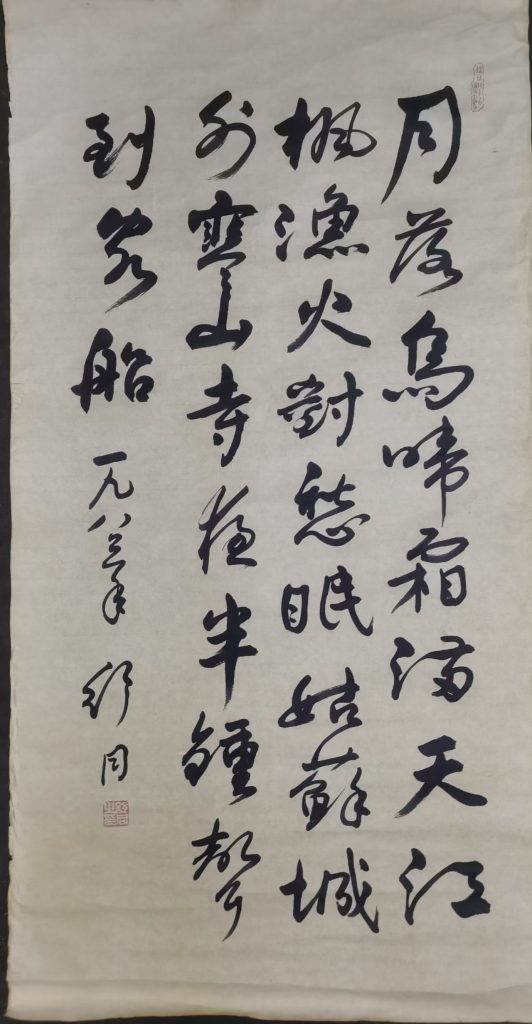 月落烏啼霜满天江
枫漁火對愁眠姑蘇城
外寒山寺夜半鐘聲
到客船
一九八三年 舒同